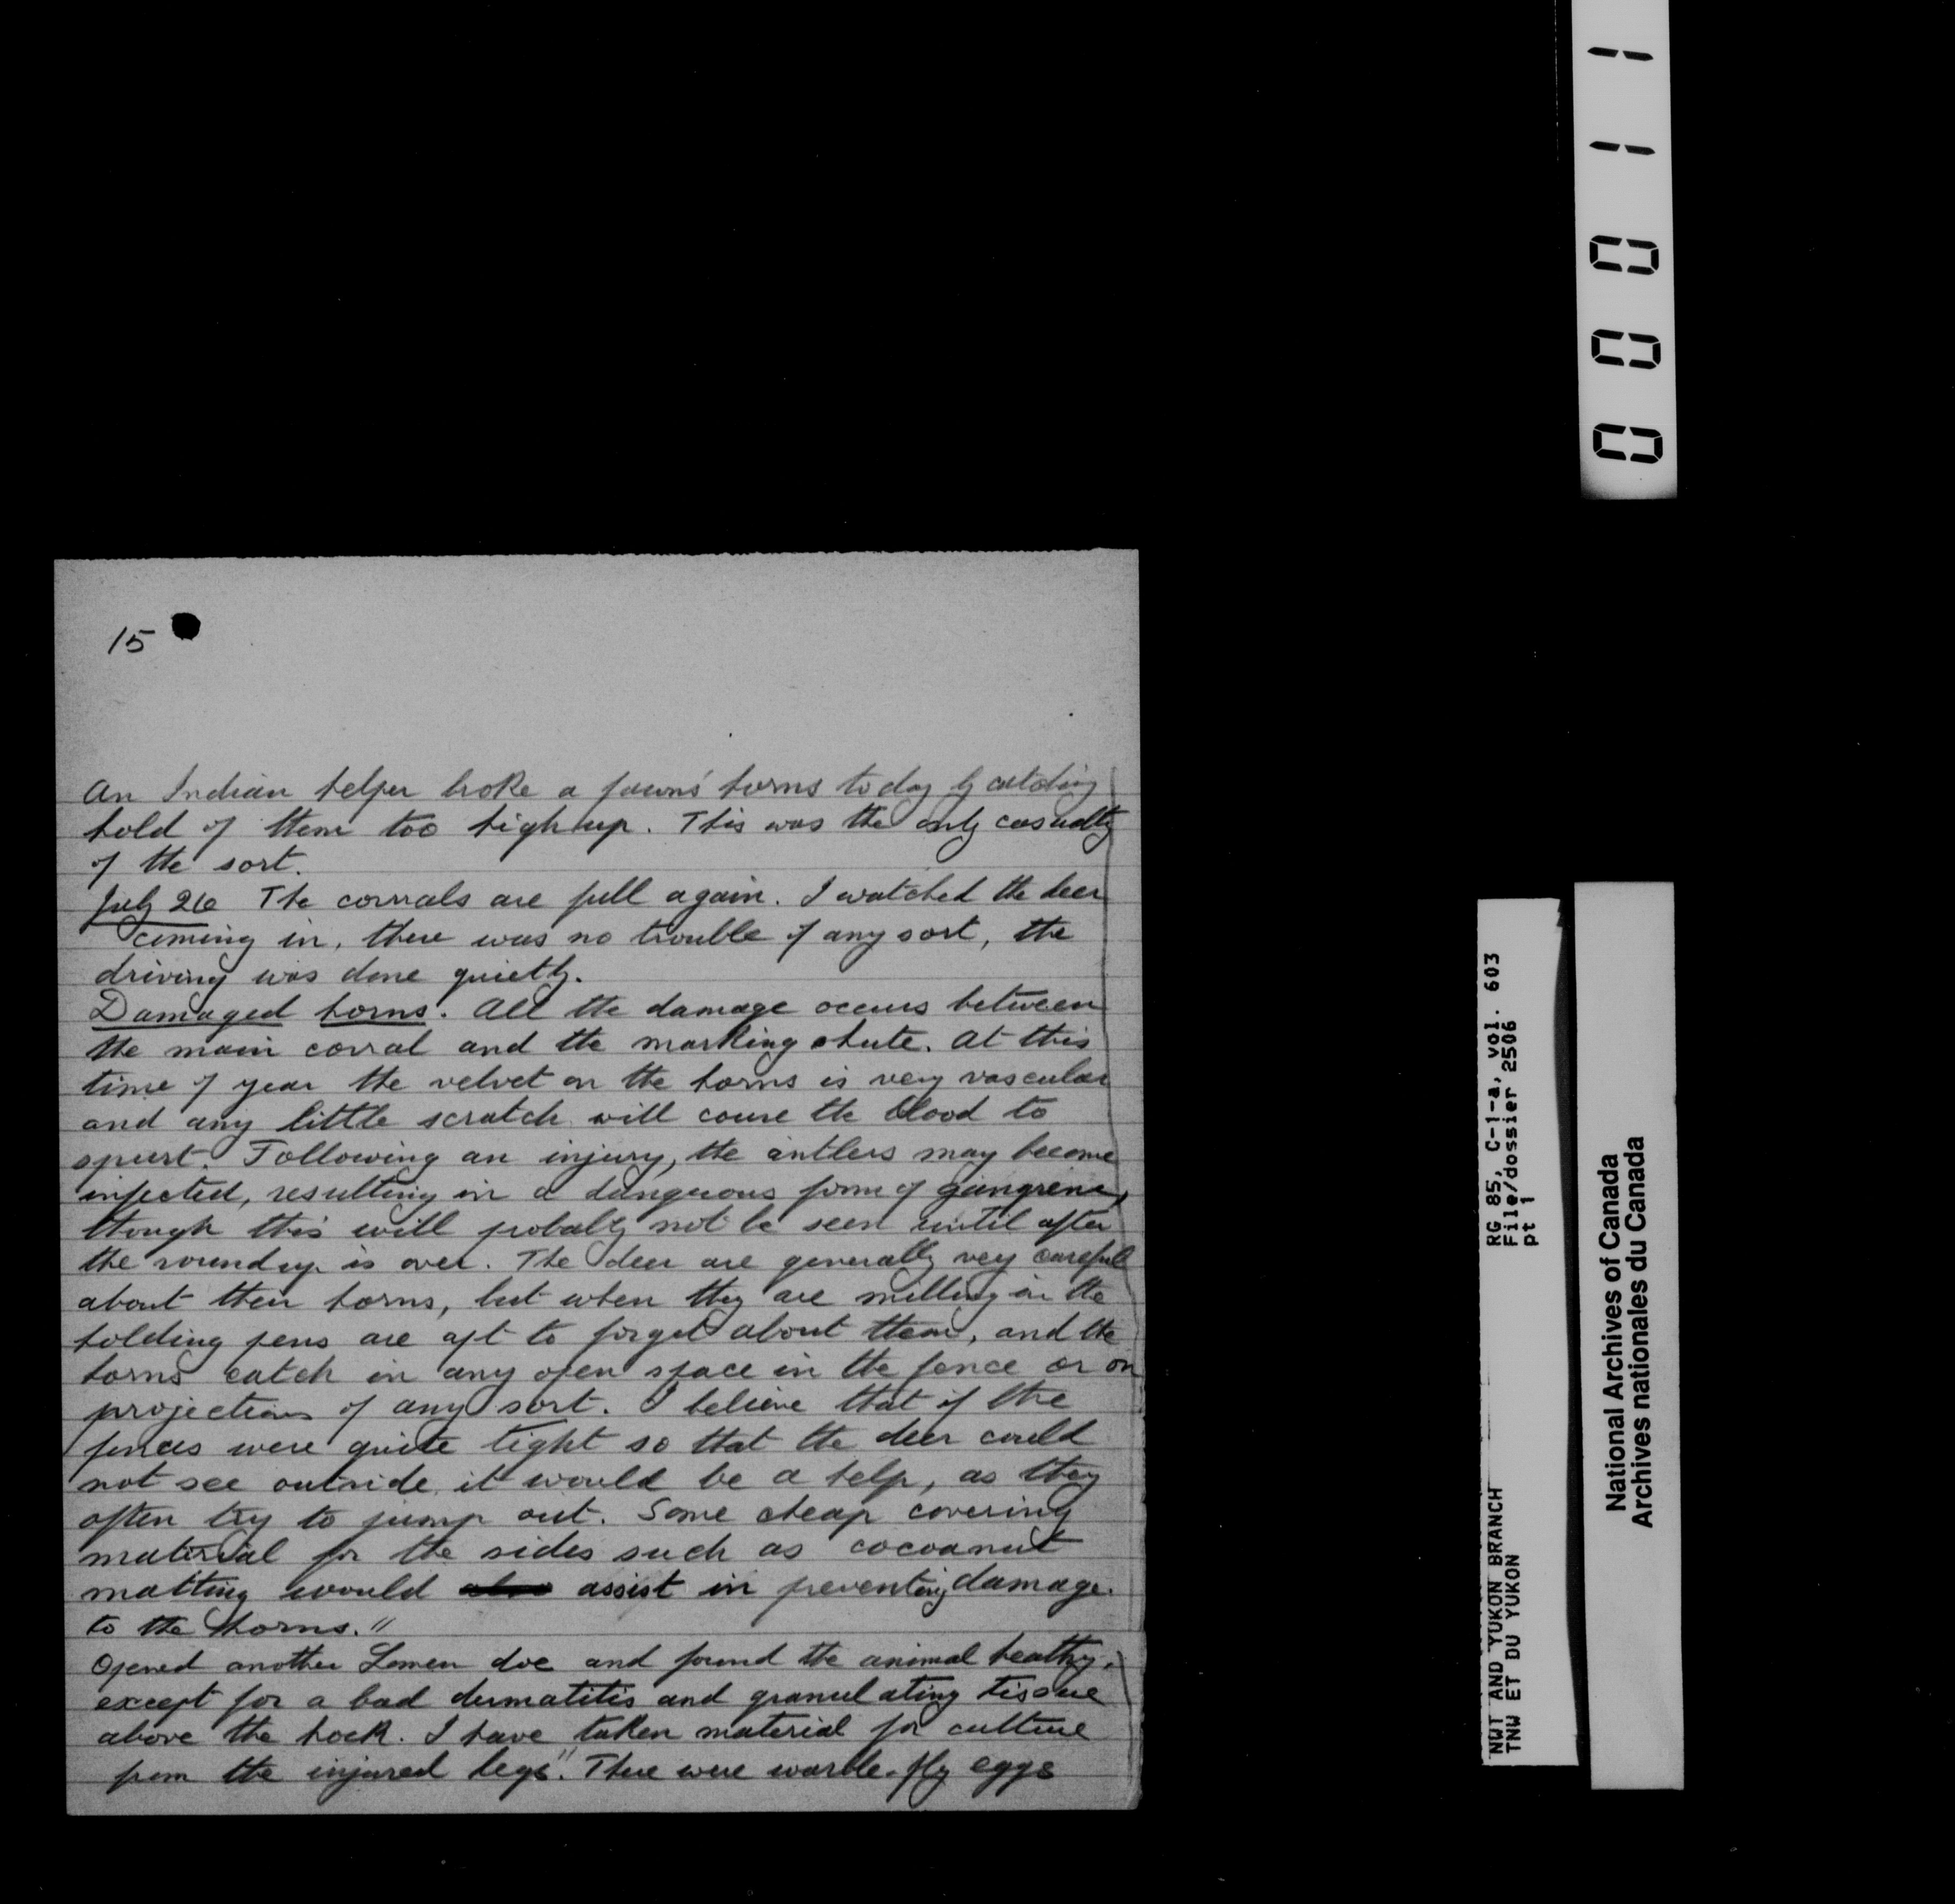 15
An Indian helper broke a fawns' horns today by catching
hold of them too high up. This was the only casualty
of the sort.
July 26 The corrals are full again. I watched the deer
coming in, there was no trouble of any sort, the
driving was done quietly.
Damaged horns. All the damage occurs between
the main corral and the marking chute. At this
time of year the velvet on the horns is very vascular
and any little scratch will cause the blood to
spurt. Following an injury, the antlers may become
infected, resulting in a dangerous form of gangrene,
though this will probably not be seen until after
the roundup is over. The deer are generally very careful
about their horns, but when they are milling in the
holding pens are apt to forget about them, and the
horns catch in any open space in the fence or on
projections of any sort. I believe that if the
fences were quite tight so that the deer could
not see outside it would be a help, as they
often try to jump out. Some cheap covering
material for the sides such as cocoanut
matting would also assist in preventing damage.
to the horns."
Opened another Lomen doe and found the animal healthy,
except for a bad dermatitis and granulating tissue
above the hock. I have taken material for culture
from the injured legs." There were warble-fly eggs
00011
RG 85, C-1-a, vol. 603
File/dossier 2506
pt 1
NWT AND YUKON BRANCH
TNW ET DU YUKON
National Archives of Canada
Archives nationales du Canada